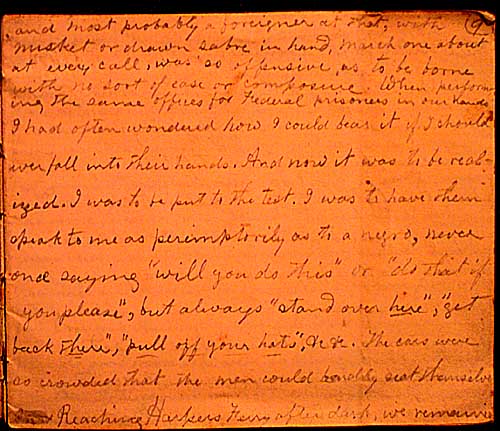 and most probably a foreigner at that, with (9
musket or drawn sabre in hand, march one about
at every call, was so offensive, as to be borne
with no sort of ease or composure. When perform-
ing the same offices for Federal prisoners in our hands
I had often wondered how I could bear it if I should
ever fall into their hands. And now it was to be real-
ized. I was to be put to the test. I was to have them
speak to me as perimptorily as to a negro, never
once saying "will you do this" or "do that if
you please", but always "stand over here", "get
back there", "pull off your hats", &c &c. The cars were
so crowded that the men could hardly seat themselve
Reaching Harpers Ferry after dark, we remaine